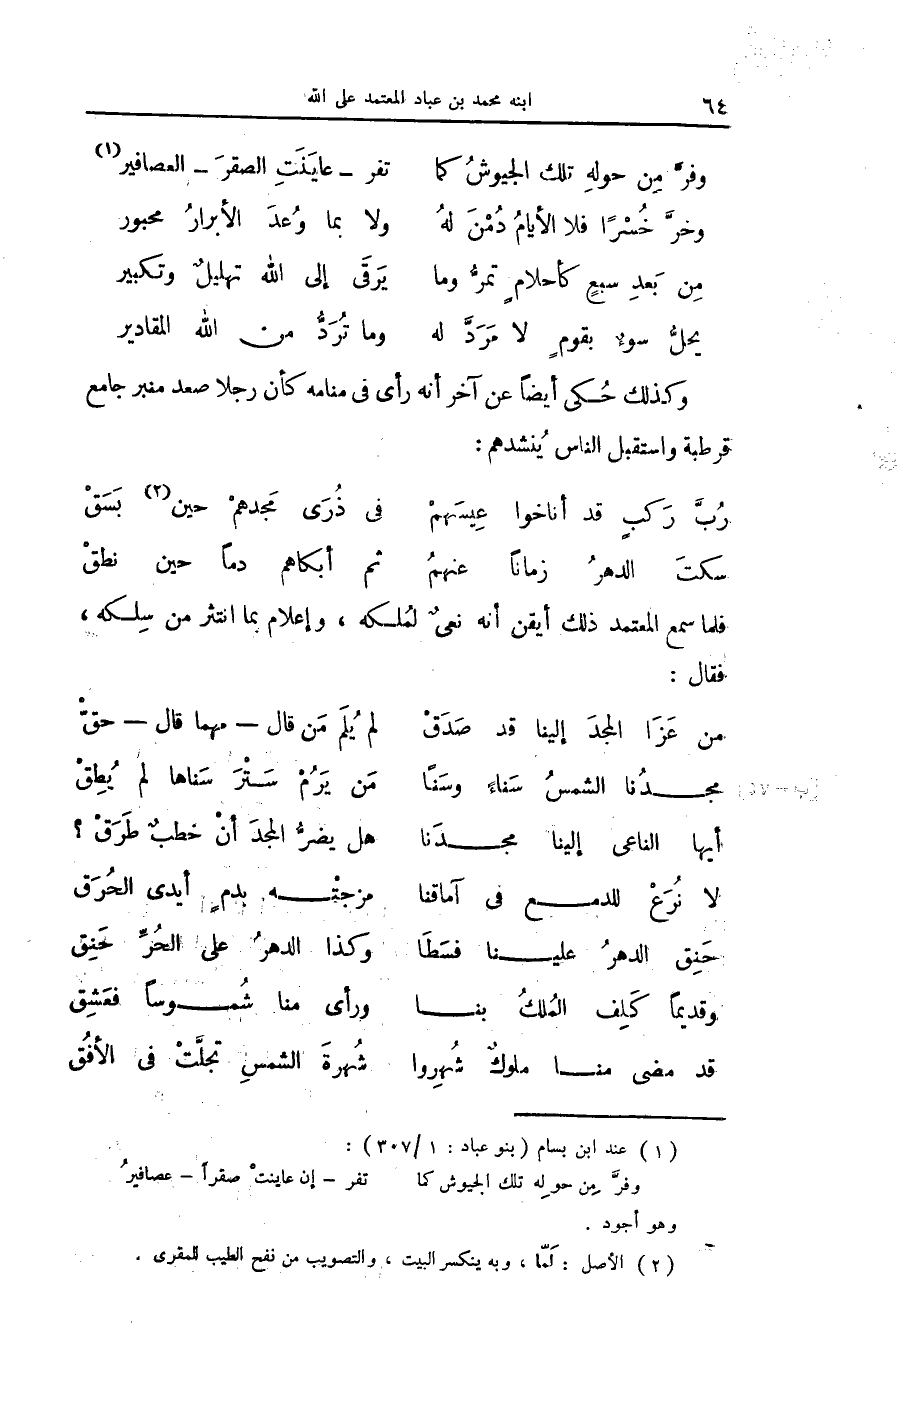 ٦٤ ابنه محمد بن عباد المعتمد على الله
وفرَّ مِن حولهِ تلك الجيوشُ كما تفر – عايَنَتِ الصقرَ – العصافير(١)
وخرَّ خُسْرًا فلا الأيامُ دُمْنَ لهُ ولا بما وُعدَ الأبرارُ محبور
مِن بَعدِ سبعٍ كأحلامٍ تمرُّ وما يَرقَى إلى الله تهليلٌ وتكبير
يحلُّ سوءٌ بقومٍ لا مَرَدَّ له وما تُرَدُّ من الله المقادير
وكذلك حُكى أيضاً عن آخر أنه رأى فى منامه كأن رجلا صعد منبر جامع
قرطبة واستقبل الناس يُنشدهم :
رُبَّ رَكبٍ قد أناخوا عِيسَهمْ فى ذُرَى مَجدهمْ حين(٢) بَسَقْ
سكتَ الدهرُ زماناً عنهمُ ثم أبكاهم دماً حين نطقْ
فلما سمع المعتمد ذلك أيقن أنه نعىٌ لمُلكه ، وإعلام بما انتثر من سِلكه ،
فقال :
من عَزَا المجدَ إلينا قد صَدَقْ لم يُلَم مَن قال – مهما قال – حقّْ
مجدُنا الشمسُ سَناءً وسَنًا مَن يَرُمْ سَتْرَ سَناها لم يُطِقْ
أيها الناعى إلينا مجدَنا هل يضرُّ المجدَ أنْ خطبٌ طَرَقْ ؟
لا نُرَعْ للدمع فى آماقنا مزجتْه بدمٍ أيدى الحُرَق
حَنِق الدهرُ علينا فسَطَا وكذا الدهرُ على الحُرِّ حَنِق
وقديماً كَلِف المُلكُ بنا ورأى منا شُموساً فعَشِق
قد مضى منا ملوكٌ شُهِروا شُهرةَ الشمسِ تجلَّتْ فى الأفُق
(١) عند ابن بسام (بنو عباد : ١/٣٠٧) :
وفرَّ مِن حوله تلك الجيوش كما تفر – إن عاينتْ صقراً – عصافيرُ
وهو أجود .
(٢) الأصل : لَمّا ، وبه ينكسر البيت ، والتصويب من نفح الطيب للمقرى .